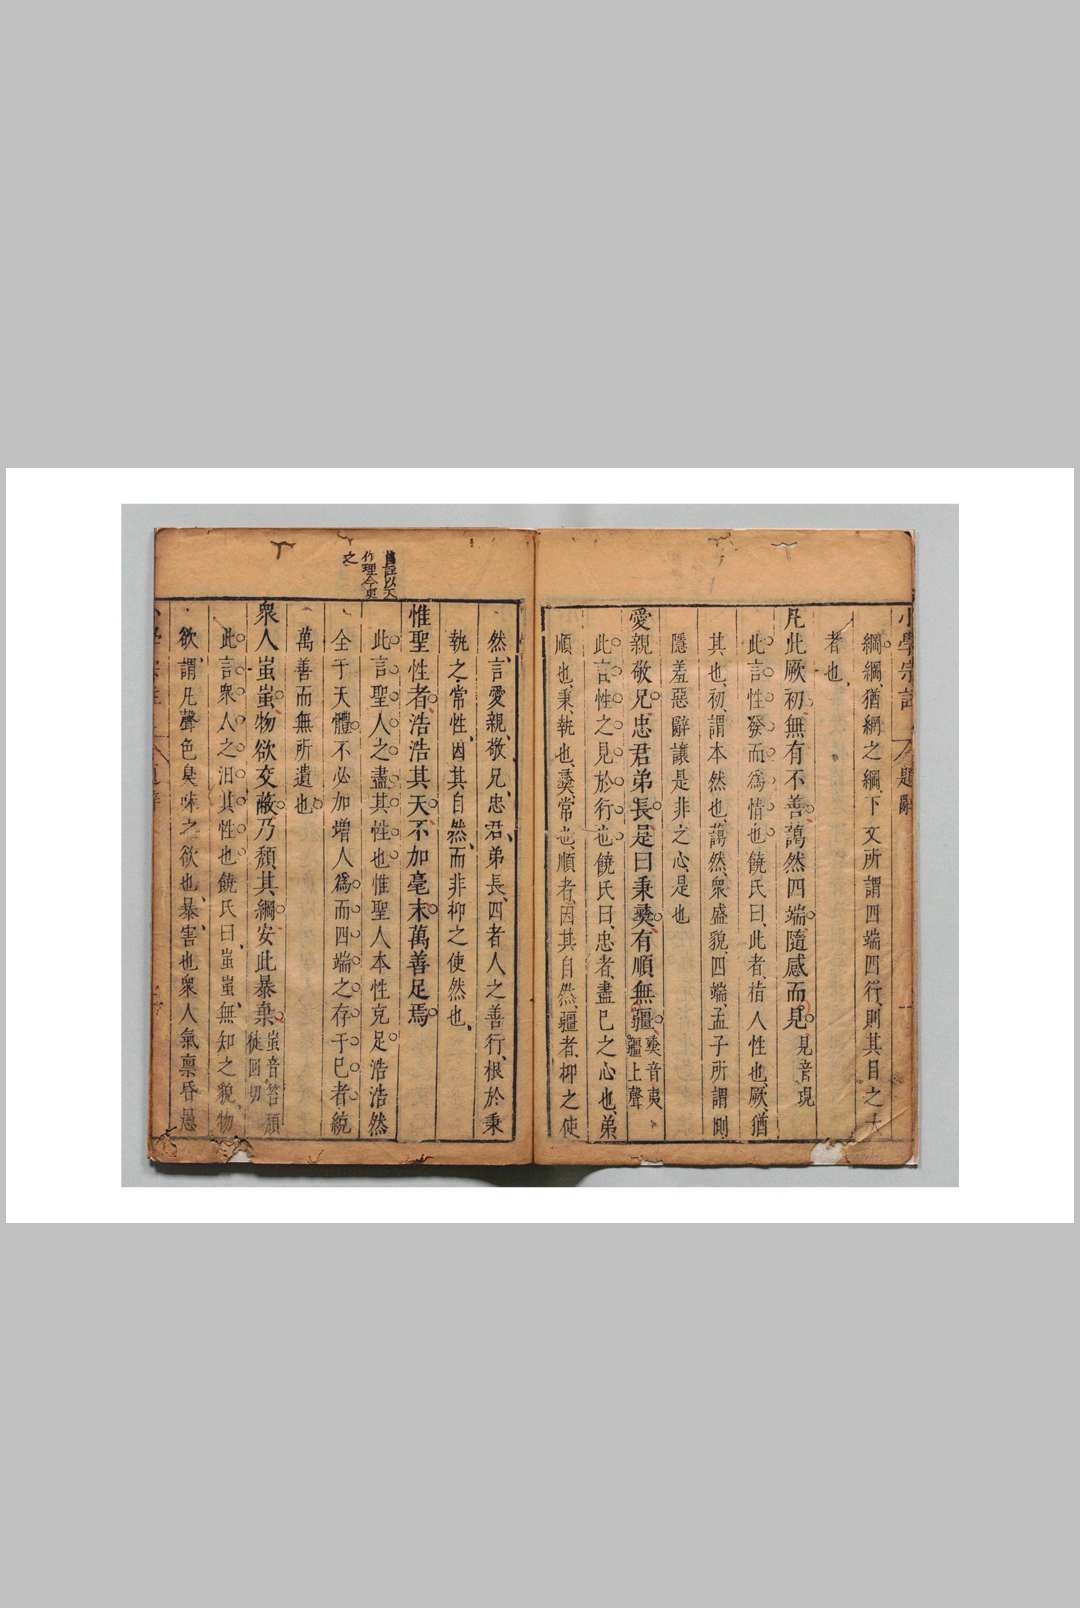 小學宗註
題辭
綱綱猶網之綱、下文所謂四端四行、則其目之大
者也、
凡此厥初、無有不善、藹然四端、隨感而見見音現
此言性發而爲情也饒氏曰、此者、指人性也、厥、猶
其也、初、謂本然也、藹然、衆盛貌、四端、孟子所謂惻
隱羞惡辭讓是非之心是也
愛親敬兄忠君弟長是曰秉彝有順無疆彝音夷疆上聲
此言性之見於行也饒氏曰、忠者、盡己之心也、弟
順也、秉、執也、彝、常也、順者、因其自然、疆者、抑之使
然、言愛親、敬兄、忠君、弟長、四者人之善行、根於秉
執之常性、因其自然、而非抑之使然也、
惟聖性者、浩浩其天、不加毫末、萬善足焉、
舊註以天
作理今更
之
此言聖人之盡其性也惟聖人本性克足浩浩然
全于天體不必加增人爲而四端之存于己者統
萬善而無所遺也
衆人蚩蚩物欲交蔽乃頹其綱安此暴棄蚩音笞頹徒回切
此言衆人之汨其性也饒氏曰、蚩蚩、無知之貌、物
欲、謂凡聲色臭味之欲也、暴、害也衆人氣稟昏愚